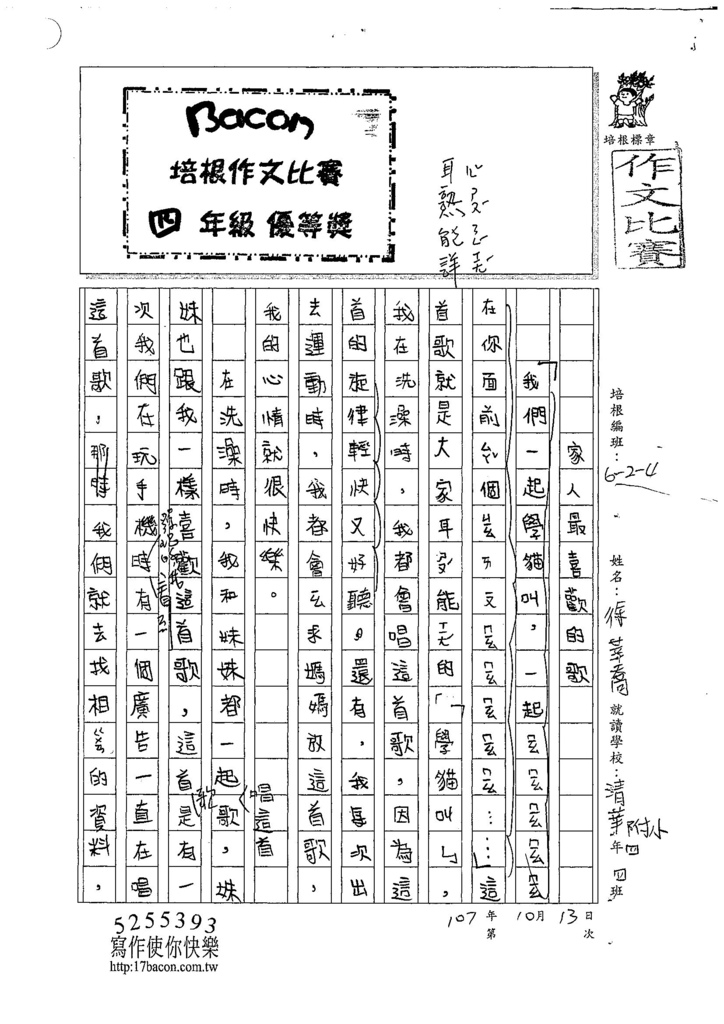 Bacon
培根作文比賽
四年級 優等獎
培根標章
作文比賽
培根編班：6-2-4
姓名：徐
就讀學校：清華附小
年四 四班
107年10月13日
第 次
家人最喜歡的歌
「我們一起學貓叫，一起
在你面前 個ㄙㄞ
首歌就是大家耳 能 的「學貓叫」，
我在洗澡時，我都會唱這首歌，因為這
首的旋律輕快又好聽。還有，我每次出
去運動時，我都會 求媽媽放這首歌，
我的心情就很快樂。
在洗澡時，我和妹妹都一起歌，妹
妹也跟我一樣喜歡這首歌，這首是有一
次我們在玩手機時有一個廣告一直在唱
這首歌，那時我們就去找相 的資料，
心
耳熟能詳
唱這首
歌
5255393
寫作使你快樂
http:17bacon.com.tw